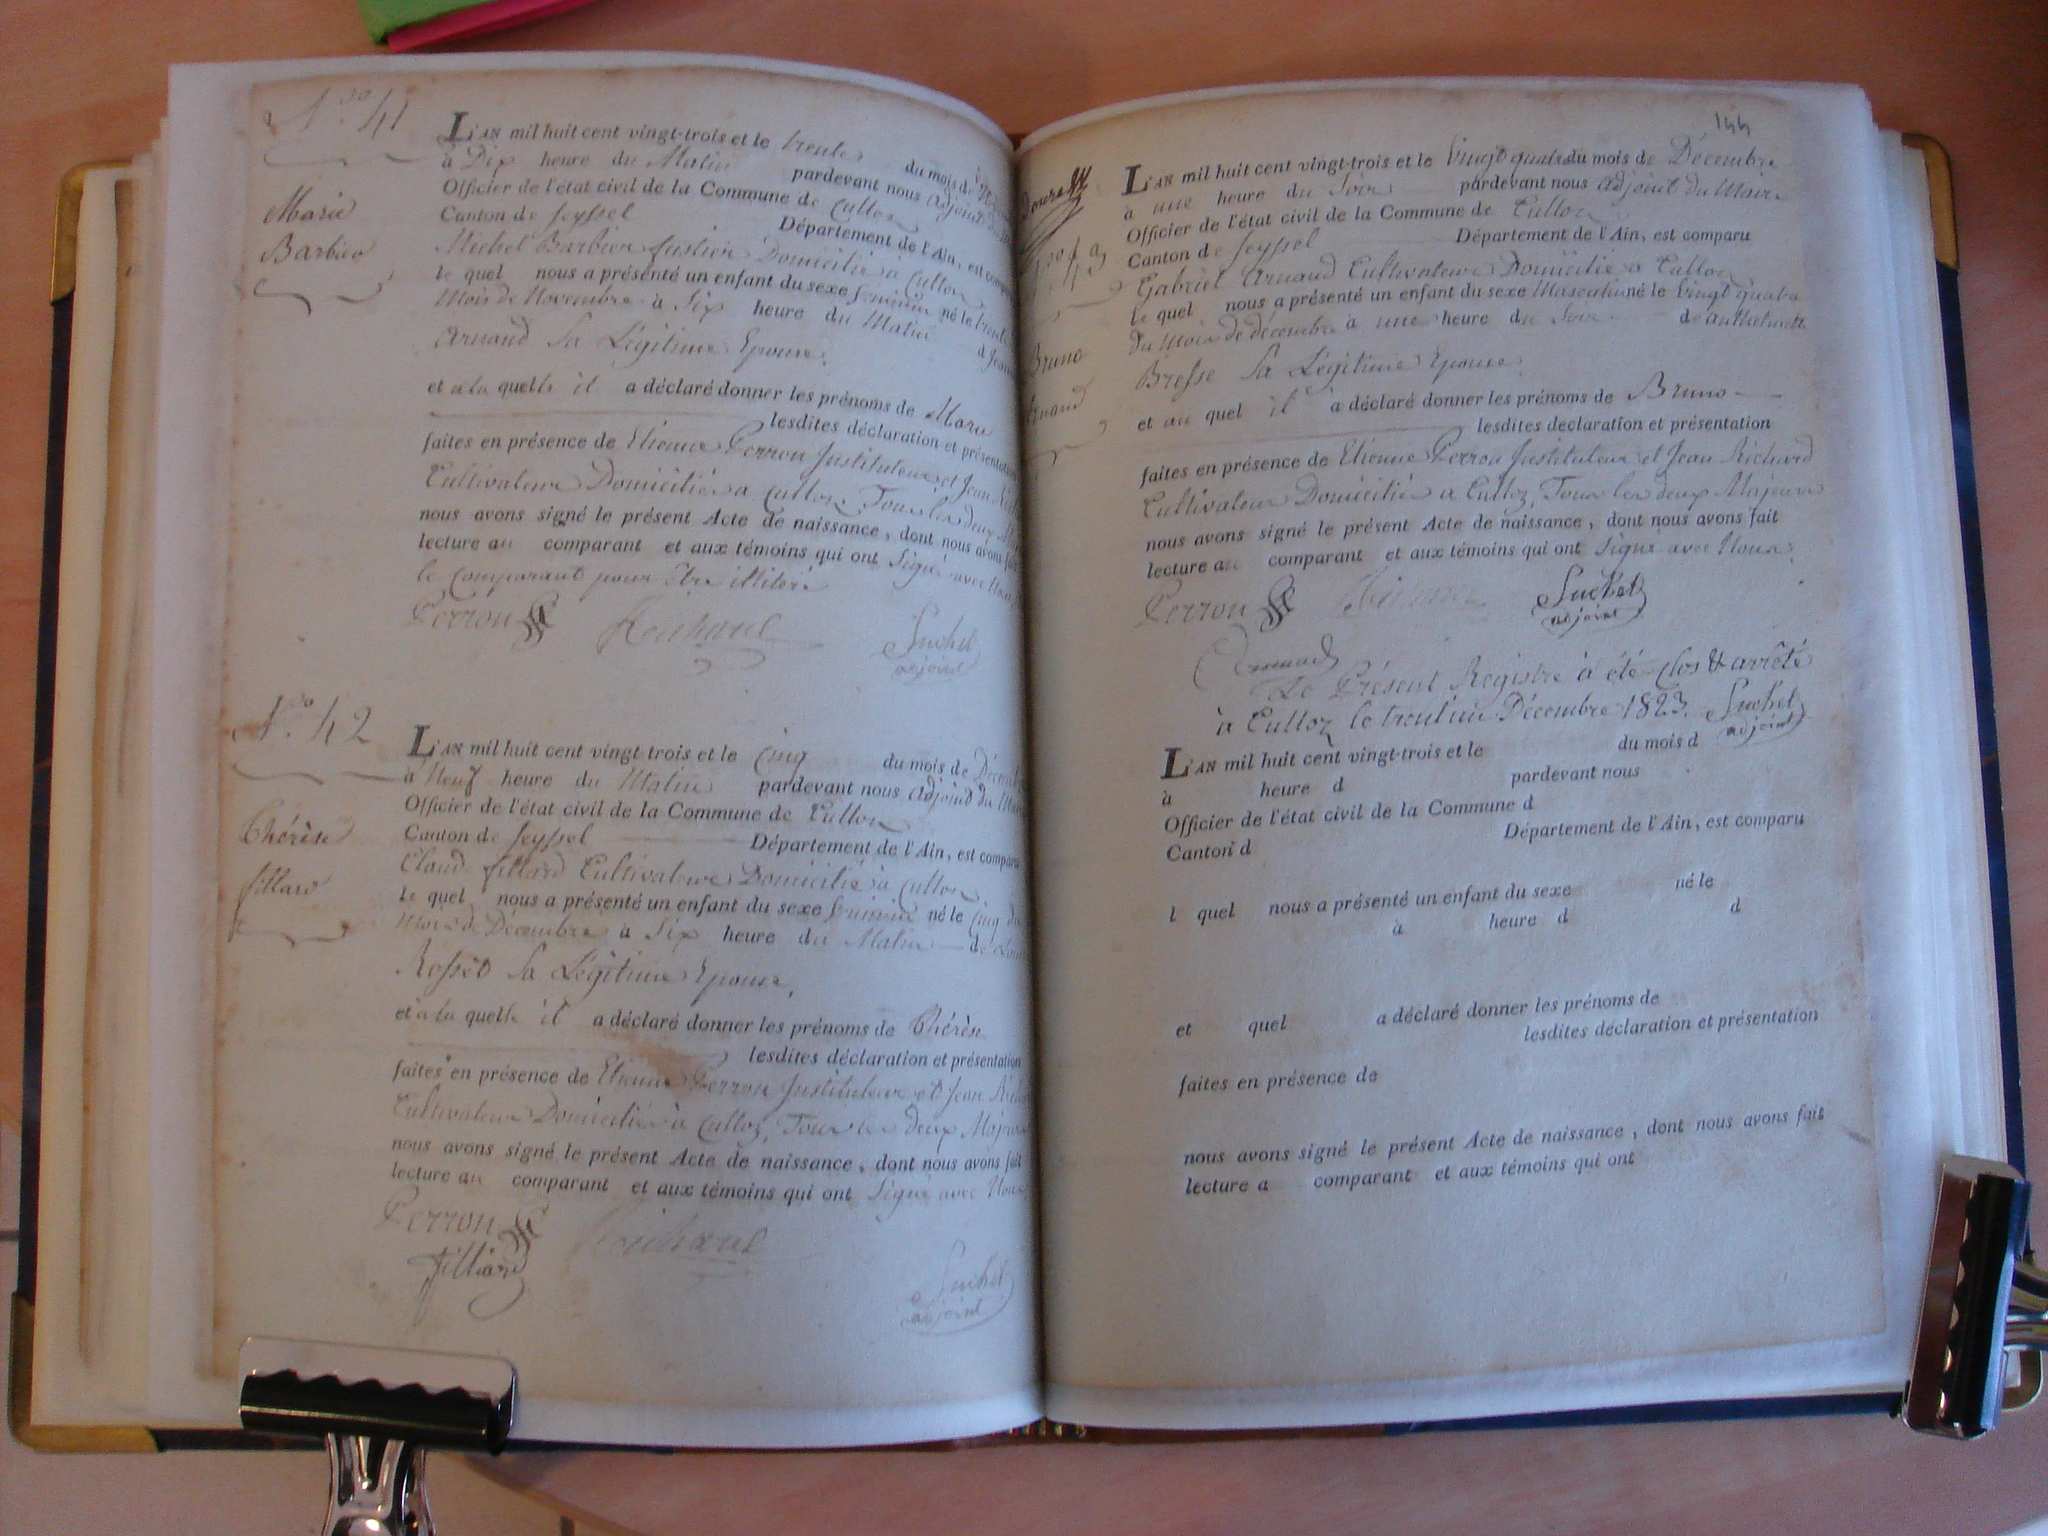 N.ro 41
Marie
Barbier
L'AN mil huit cent vingt-trois et le trente du mois de
à Dix heure du Matin pardevant nous adjoint du
Officier de l'état civil de la Commune de Culloz
Canton de Seyssel Département de l'Ain, est comparu
Michel Barbier Domicilié à Culloz
le quel nous a présenté un enfant du sexe feminin né le trente
Mois de Novembre à Six heure du Matin d
Arnaud Sa Légitime Epouse.
et a la quelle il a déclaré donner les prénoms de Marie
lesdites déclaration et présentation
faites en présence de Etienne Perron Instituteur et Jean
Cultivateur Domicilié à Culloz, Tous les deux
nous avons signé le présent Acte de naissance, dont nous avons fait
lecture au comparant et aux témoins qui ont Signé avec Nous
le Comparant pour être illitéré
Perron Richard Suchet
adjoint
N.ro 42
Thérèse
fillard
L'AN mil huit cent vingt trois et le Cinq du mois de
à Neuf heure du Matin pardevant nous Adjoint du
Officier de l'état civil de la Commune de Culloz
Canton de Seyssel Département de l'Ain, est comparu
Claude fillard Cultivateur Domicilié à Culloz
le quel nous a présenté un enfant du sexe feminin né le Cinq du
Mois de Décembre à Six heure du Matin de
Rosset Sa Légitime Epouse,
et à la quelle il a déclaré donner les prénoms de Thérèse
lesdites déclaration et présentation
faites en présence de Etienne Perron Instituteur et Jean
Cultivateur Domicilié à Culloz, Tous les deux
nous avons signé le présent Acte de naissance, dont nous avons fait
lecture au comparant et aux témoins qui ont Signé avec Nous
Perron Richard
fillard Suchet
adjoint
144
43
Bruno
L'AN mil huit cent vingt-trois et le Vingt quatre du mois de Décembre
à une heure du Soir pardevant nous Adjoint du Maire
Officier de l'état civil de la Commune de Culloz
Canton de Seyssel Département de l'Ain, est comparu
Gabriel Arnaud Cultivateur Domicilié à Culloz
le quel nous a présenté un enfant du sexe Masculin né le Vingt quatre
du Mois de décembre à une heure du Soir
Bresse Sa Légitime Epouse.
et au quel il a déclaré donner les prénoms de Bruno
lesdites déclaration et présentation
faites en présence de Etienne Perron Instituteur et Jean Richard
Cultivateur Domicilié à Culloz, Tous les deux Majeurs
nous avons signé le présent Acte de naissance, dont nous avons fait
lecture au comparant et aux témoins qui ont Signé avec Nous
Perron Suchet
adjoint
Arnaud
Le Présent Registre à été clos & arrêté
à Culloz le Décembre 1823. Suchet
adjoint
L'AN mil huit cent vingt-trois et le du mois d
à heure d pardevant nous
Officier de l'état civil de la Commune d
Canton d Département de l'Ain, est comparu
l quel nous a présenté un enfant du sexe né le
à heure d d
et quel a déclaré donner les prénoms de
lesdites déclaration et présentation
faites en présence de
nous avons signé le présent Acte de naissance, dont nous avons fait
lecture a comparant et aux témoins qui ont